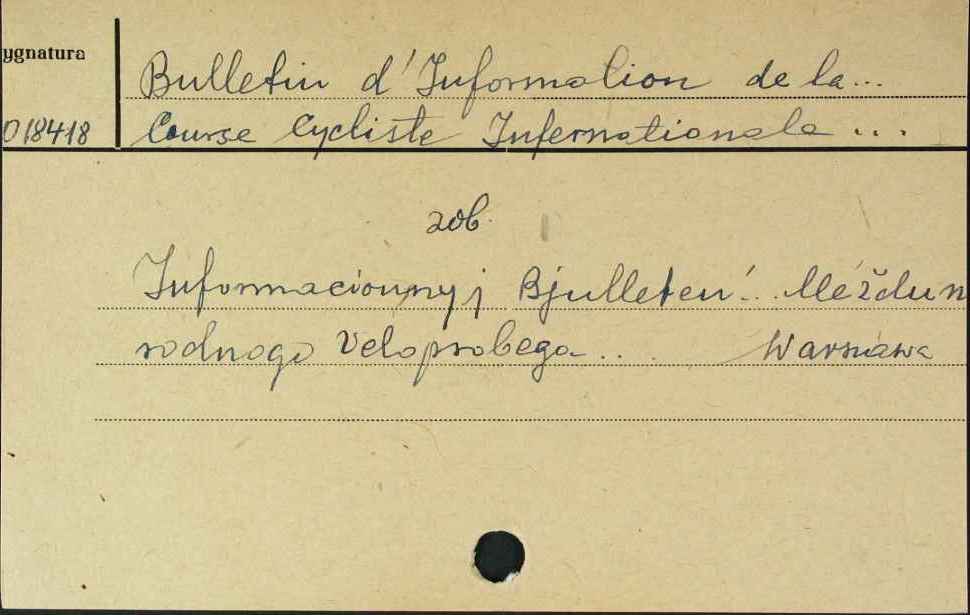 ygnatura
Bulletin d'Information de la...
018418
Course Cycliste Internationale ...
zob.
Informacionnyj Bjulleten'... Meždun
rodnogo Veloprobega... Warszawa